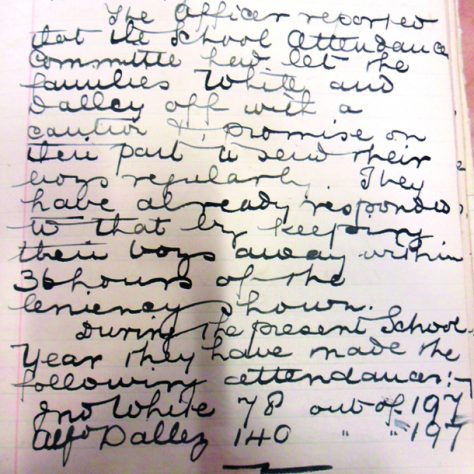 The Officer reported
that the School Attendance
Committee had let the
families White and
Dalley off with a
caution & promise on
their part to send their
boys regularly. They
have already responded
to that by keeping
their boys away within
36 hours of the
leniency shown.
During the present School
Year they have made the
following attendances:-
Jno White 78 out of 197
Alf. Dalley 140 " " 197